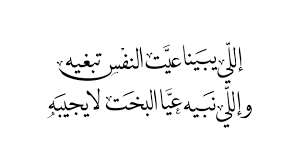 إللّي يبينا عيّت النفس تبغيه
وإللّي نبيه عيّا البخت لا يجيبه